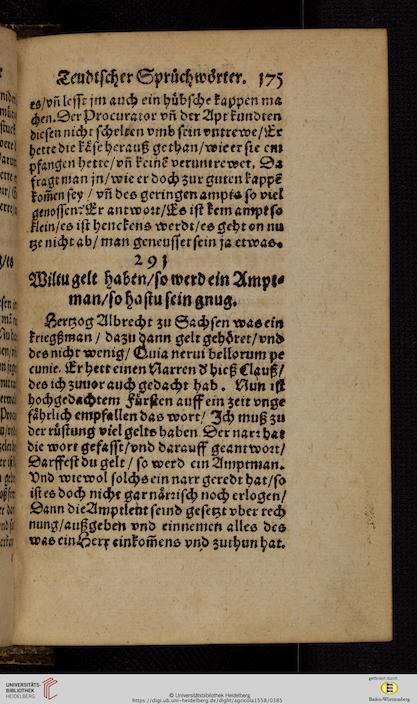 Teudtscher Sprüchwörter. 175
es/vñ lesst jm auch ein hübsche kappen ma
chen. Der Procurator vñ der Apt kundten
diesen nicht schelten vmb sein vntrewe/Er
hette die käse herauß gethan/wie er sie em
pfangen hette/vñ keinē veruntrewet. Da
fragt man jn/wie er doch zur guten kappē
kom̄en sey/ vñ des geringen ampts so viel
genossen? Er antwort/Es ist kein ampt so
klein/es ist henckens werdt/es geht on nu
tze nicht ab/man geneusset sein ja etwas.
291
Wiltu gelt haben/so werd ein Ampt=
man/so hastu sein gnug.
Hertzog Albrecht zu Sachsen was ein
kriegßman / dazu dann gelt gehöret/vnd
des nicht wenig/ Quia nerui bellorum pe
cunie. Er hett einen Narren d hieß Clauß/
des ich zuuor auch gedacht hab. Nun ist
hochgedachtem Fürsten auff ein zeit vnge
fährlich empfallen das wort/ Jch muß zu
der rüstung viel gelts haben Der narr hat
die wort gefasst/vnd darauff geantwort/
Darffest du gelt / so werd ein Amptman.
Vnd wiewol solchs ein narr geredt hat/so
ist es doch nicht gar närrisch noch erlogen/
Dann die Amptleut seind gesetzt vber rech
nung/außgeben vnd einnemen alles des
was ein Herr einkom̄ens vnd zuthun hat.
UNIVERSITÄTS-
BIBLIOTHEK
HEIDELBERG
© Universitätsbibliothek Heidelberg
https://digi.ub.uni-heidelberg.de/diglit/agricola1558/0385
gefördert durch
Baden-Württemberg